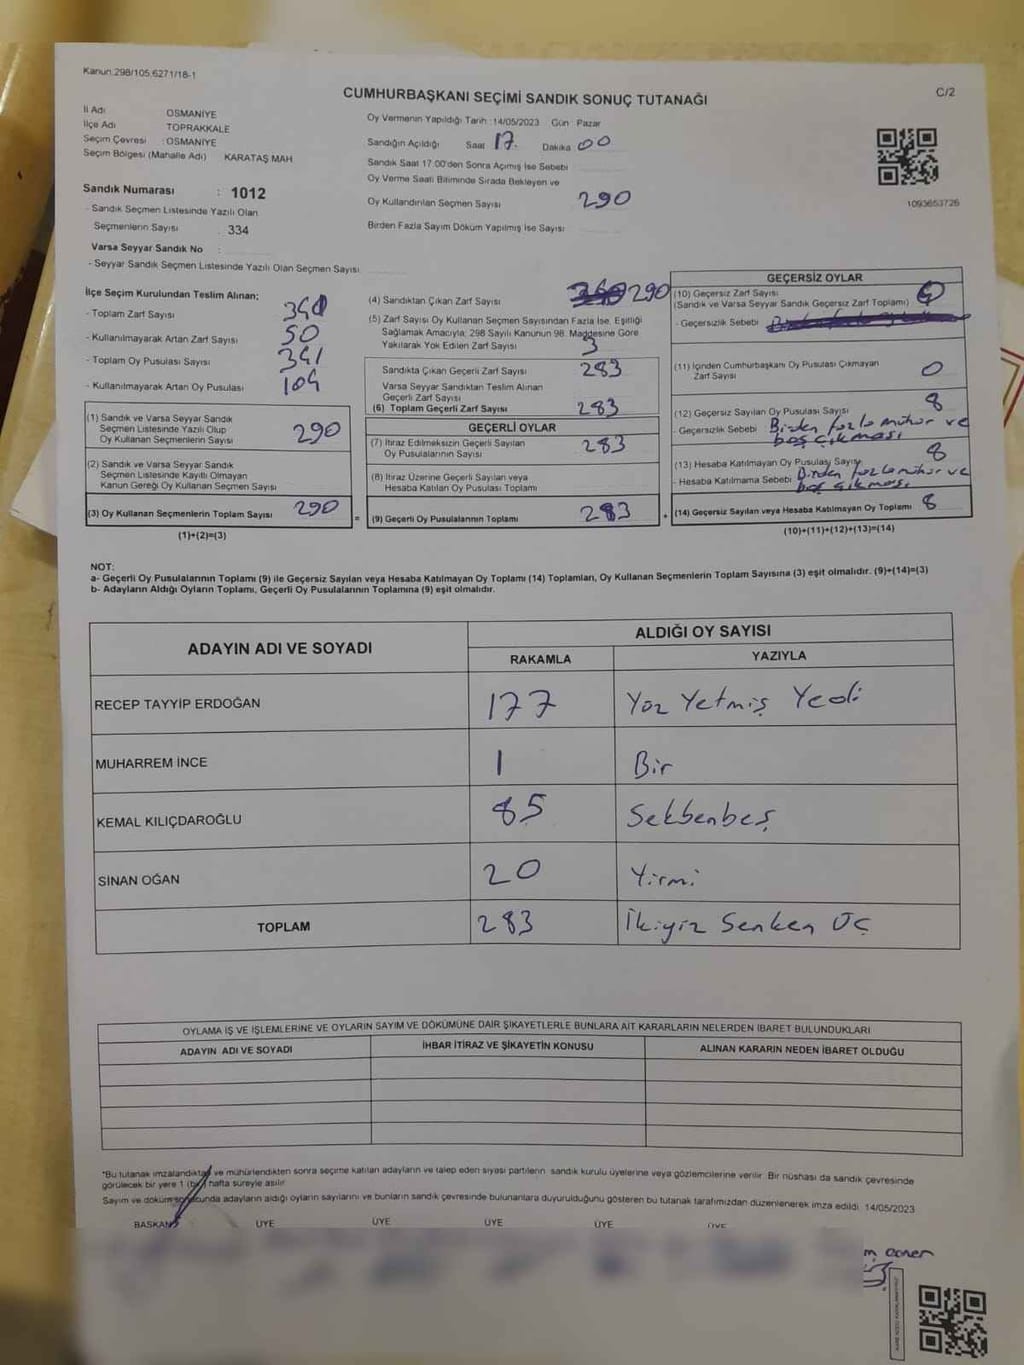 Kanun:298/105,6271/18-1
C/2
CUMHURBAŞKANI SEÇİMİ SANDIK SONUÇ TUTANAĞI
İl Adı OSMANİYE
İlçe Adı TOPRAKKALE
Seçim Çevresi : OSMANİYE
Seçim Bölgesi (Mahalle Adı) KARATAŞ MAH
Sandık Numarası : 1012
- Sandık Seçmen Listesinde Yazılı Olan
Seçmenlerin Sayısı : 334
Varsa Seyyar Sandık No :
- Seyyar Sandık Seçmen Listesinde Yazılı Olan Seçmen Sayısı
Oy Vermenin Yapıldığı Tarih :14/05/2023 Gün : Pazar
Sandığın Açıldığı Saat 17. Dakika 00
Sandık Saat 17.00'den Sonra Açılmış İse Sebebi
Oy Verme Saati Bitiminde Sırada Bekleyen ve
Oy Kullandırılan Seçmen Sayısı 290
Birden Fazla Sayım Döküm Yapılmış İse Sayısı
1093653726
İlçe Seçim Kurulundan Teslim Alınan;
- Toplam Zarf Sayısı
- Kullanılmayarak Artan Zarf Sayısı 50
- Toplam Oy Pusulası Sayısı 341
- Kullanılmayarak Artan Oy Pusulası 104
(1) Sandık ve Varsa Seyyar Sandık
Seçmen Listesinde Yazılı Olup
Oy Kullanan Seçmenlerin Sayısı 290
(2) Sandık ve Varsa Seyyar Sandık
Seçmen Listesinde Kayıtlı Olmayan
Kanun Gereği Oy Kullanan Seçmen Sayısı
(3) Oy Kullanan Seçmenlerin Toplam Sayısı 290
(1)+(2)=(3)
(4) Sandıktan Çıkan Zarf Sayısı 290
(5) Zarf Sayısı Oy Kullanan Seçmen Sayısından Fazla İse, Eşitliği
Sağlamak Amacıyla; 298 Sayılı Kanunun 98. Maddesine Göre
Yakılarak Yok Edilen Zarf Sayısı 3
Sandıkta Çıkan Geçerli Zarf Sayısı 283
Varsa Seyyar Sandıktan Teslim Alınan
Geçerli Zarf Sayısı
(6) Toplam Geçerli Zarf Sayısı 283
GEÇERLİ OYLAR
(7) İtiraz Edilmeksizin Geçerli Sayılan
Oy Pusulalarının Sayısı 283
(8) İtiraz Üzerine Geçerli Sayılan veya
Hesaba Katılan Oy Pusulası Toplamı
= (9) Geçerli Oy Pusulalarının Toplamı 283
GEÇERSİZ OYLAR
(10) Geçersiz Zarf Sayısı
(Sandık ve Varsa Seyyar Sandık Geçersiz Zarf Toplamı)
- Geçersizlik Sebebi
(11) İçinden Cumhurbaşkanı Oy Pusulası Çıkmayan
Zarf Sayısı 0
(12) Geçersiz Sayılan Oy Pusulası Sayısı 8
- Geçersizlik Sebebi Birden fazla mühür ve
boş çıkması
(13) Hesaba Katılmayan Oy Pusulası Sayısı 8
- Hesaba Katılmama Sebebi Birden fazla mühür ve
boş çıkması
+ (14) Geçersiz Sayılan veya Hesaba Katılmayan Oy Toplamı 8
(10)+(11)+(12)+(13)=(14)
NOT:
a- Geçerli Oy Pusulalarının Toplamı (9) ile Geçersiz Sayılan veya Hesaba Katılmayan Oy Toplamı (14) Toplamları, Oy Kullanan Seçmenlerin Toplam Sayısına (3) eşit olmalıdır. (9)+(14)=(3)
b- Adayların Aldığı Oyların Toplamı, Geçerli Oy Pusulalarının Toplamına (9) eşit olmalıdır.
ADAYIN ADI VE SOYADI
ALDIĞI OY SAYISI
RAKAMLA YAZIYLA
RECEP TAYYİP ERDOĞAN 177 Yüz Yetmiş Yedi
MUHARREM İNCE 1 Bir
KEMAL KILIÇDAROĞLU 85 Sekbenbeş
SİNAN OĞAN 20 Yirmi
TOPLAM 283 İkiyüz Senken Üç
OYLAMA İŞ VE İŞLEMLERİNE VE OYLARIN SAYIM VE DÖKÜMÜNE DAİR ŞİKAYETLERLE BUNLARA AİT KARARLARIN NELERDEN İBARET BULUNDUKLARI
ADAYIN ADI VE SOYADI İHBAR İTİRAZ VE ŞİKAYETİN KONUSU ALINAN KARARIN NEDEN İBARET OLDUĞU
*Bu tutanak imzalandıktan ve mühürlendikten sonra seçime katılan adayların ve talep eden siyasi partilerin sandık kurulu üyelerine veya gözlemcilerine verilir. Bir nüshası da sandık çevresinde
görülecek bir yere 1 (bir) hafta süreyle asılır.
Sayım ve döküm sonucunda adayların aldığı oyların sayılarını ve bunların sandık çevresinde bulunanlara duyurulduğunu gösteren bu tutanak tarafımızdan düzenlenerek imza edildi. 14/05/2023
BAŞKAN ÜYE ÜYE ÜYE ÜYE ÜYE